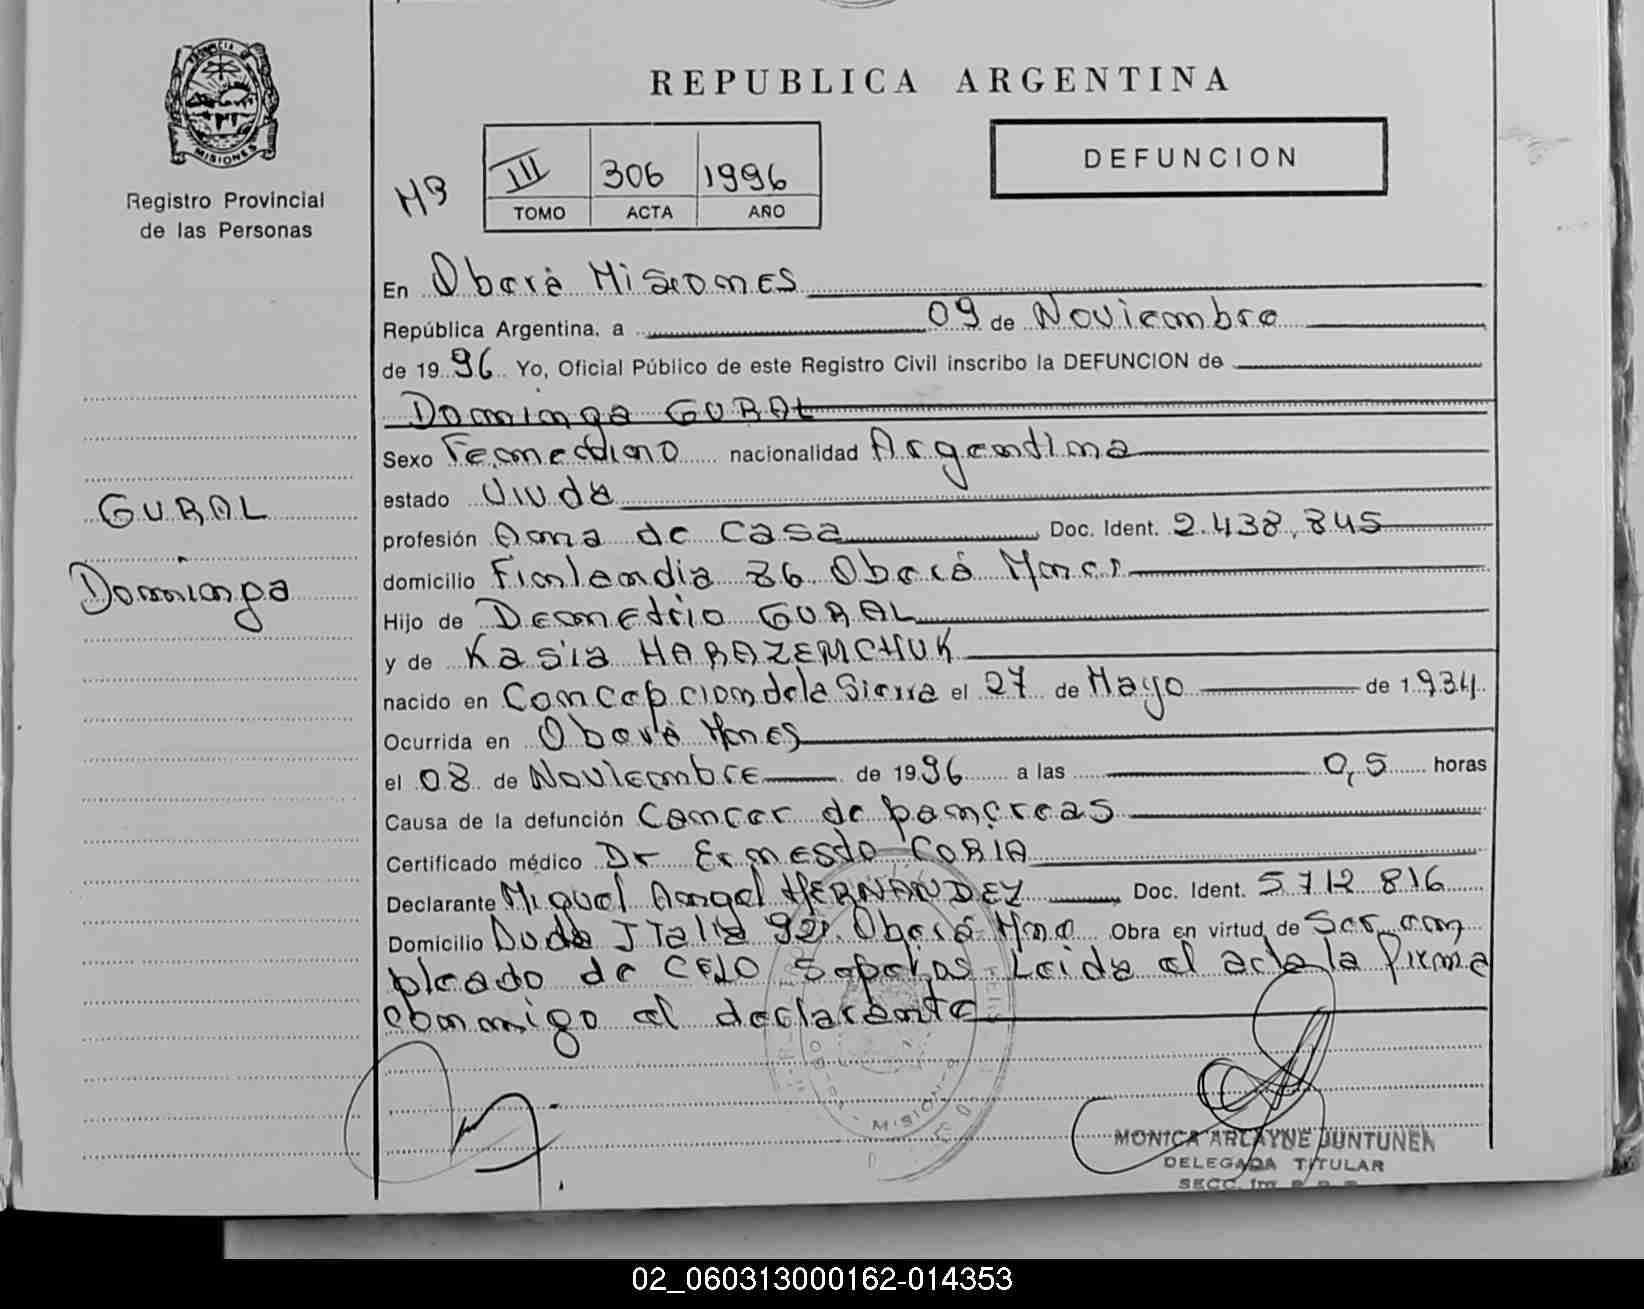 REPUBLICA ARGENTINA
MISIONES
Registro Provincial
de las Personas
HB
III 306 1996
TOMO ACTA AÑO
DEFUNCION
En Oberá Misiones
República Argentina, a 09 de Noviembre
de 1996 Yo, Oficial Público de este Registro Civil inscribo la DEFUNCION de
Dominga GURAL
Sexo Femenino nacionalidad Argentina
estado Viuda
GURAL
Dominga
profesión Ama de Casa Doc. Ident. 2.438.845
domicilio Finlandia 86 Oberá Mnes
Hijo de Demetrio GURAL
y de Kasia HARAZEMCHUK
nacido en Concepcion de la Sierra el 27 de Mayo de 1934
Ocurrida en Oberá Mnes
el 08 de Noviembre de 1996 a las 0,5 horas
Causa de la defunción Cancer de pancreas
Certificado médico Dr Ernesto CORIA
Declarante Miguel Angel HERNANDEZ Doc. Ident. 5712816
Domicilio Avda Italia 92 Oberá Obra en virtud de Ser em
pleado de CELO Sepelios Leida el acta la firma
conmigo el declarante
MISIONES
MONICA ARLAYNE JUNTUNEN
DELEGADA TITULAR
SECC.
02_060313000162-014353